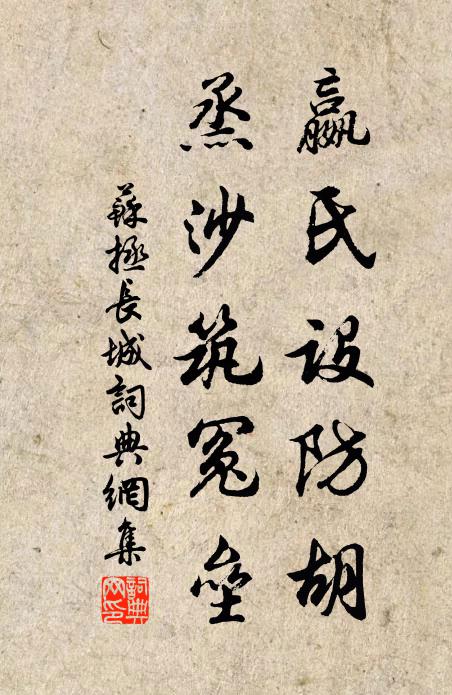 嬴氏設防胡
烝沙筑冤壘
蘇拯長城詞典網集
詞典